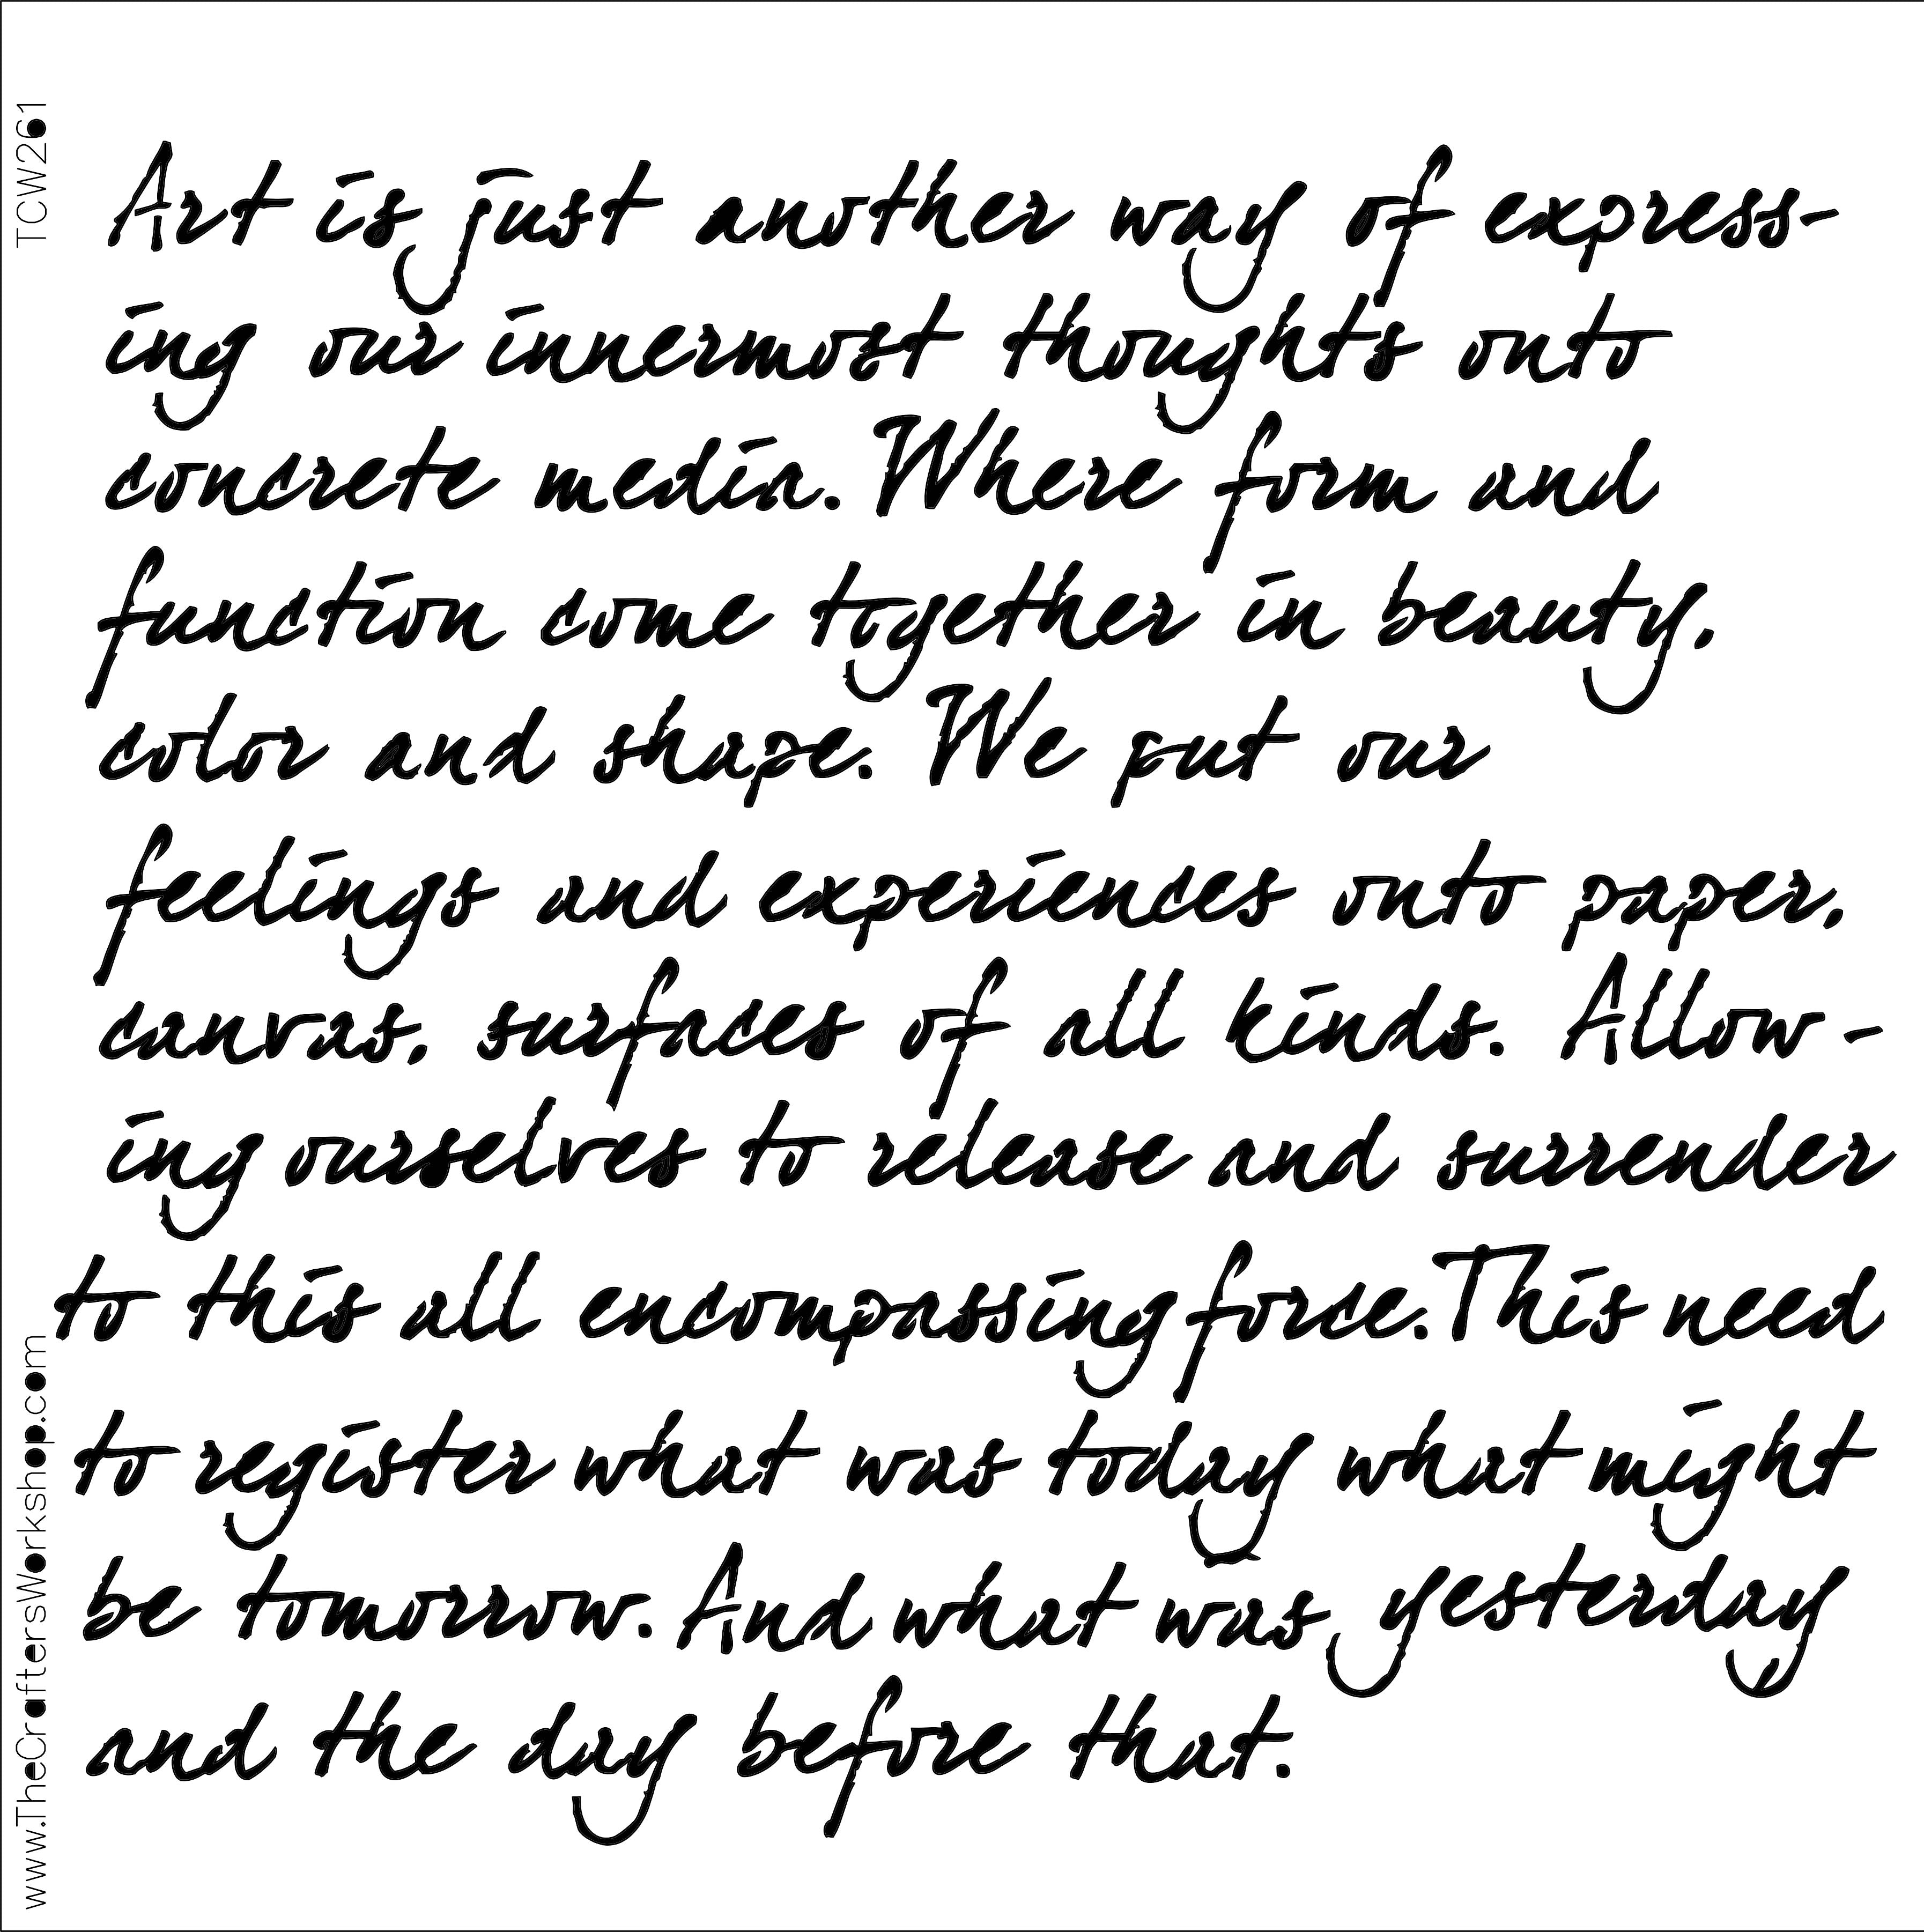 TCW261
Art is just another way of express-
ing our innermost thoughts onto
concrete media. Where form and
function come together in beauty,
color and shape. We put our
feelings and experiences onto paper,
canvas, surfaces of all kinds. Allow-
ing ourselves to release and surrender
to this all encompassing force. This need
to register what was today what might
be tomorrow. And what was yesterday
and the day before that.
www.TheCraftersWorkshop.com